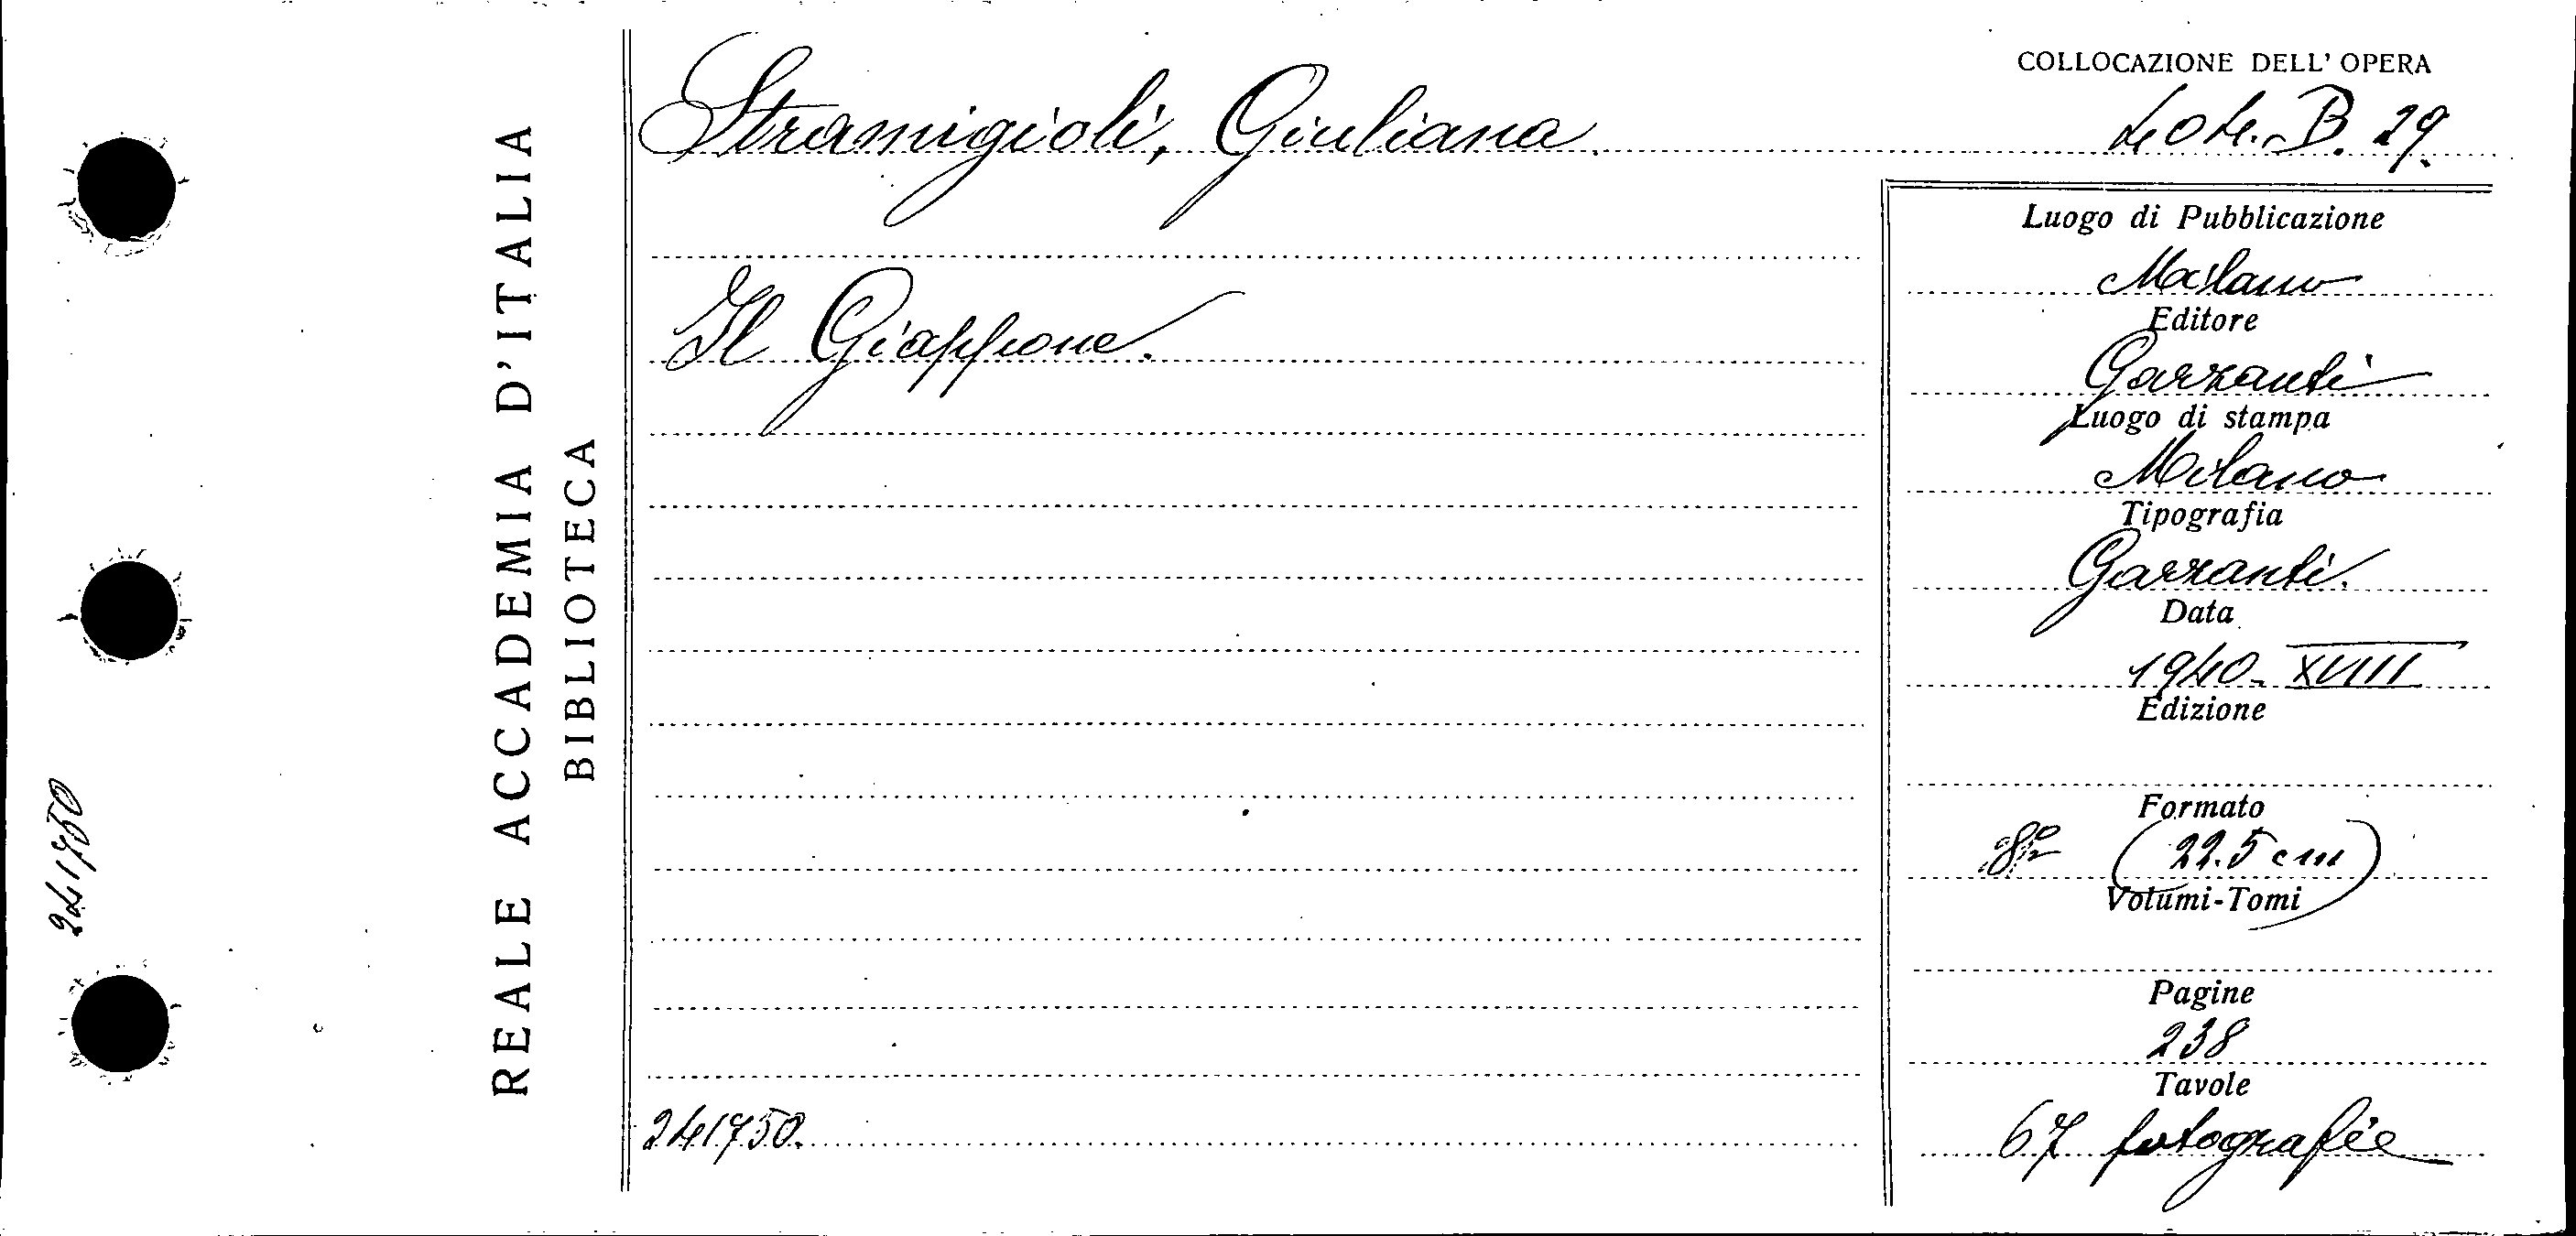 241750
REALE ACCADEMIA D'ITALIA
BIBLIOTECA
Stramigioli, Giuliana
Il Giappone.
241750.
COLLOCAZIONE DELL' OPERA
B. 29.
Luogo di Pubblicazione
Milano
Editore
Garzanti
Luogo di stampa
Milano
Tipografia
Garzanti.
Data
1940-XVIII
Edizione
Formato
8º (22.5 cm)
Volumi-Tomi
Pagine
238
Tavole
67 fotografie